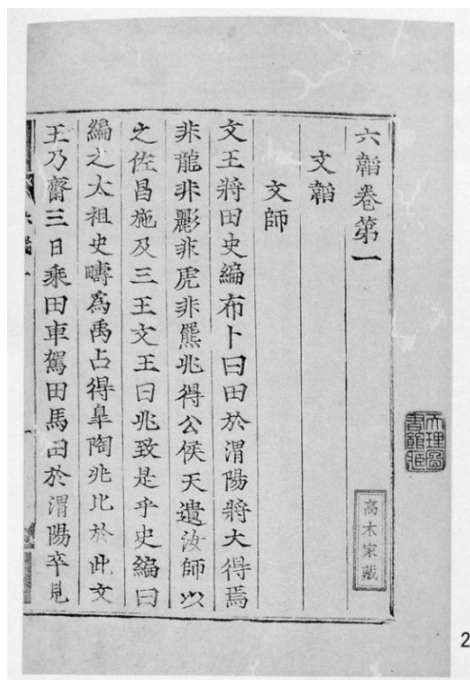 六韜卷第一
文韜
文師
文王將田史編布卜曰田於渭陽將大得焉
非龍非彲非虎非羆兆得公侯天遺汝師以
之佐昌施及三王文王曰兆致是乎史編曰
編之太祖史疇為禹占得皐陶兆比於此文
王乃齋三日乘田車駕田馬田於渭陽卒見
高木家藏
天理圖
書館
2